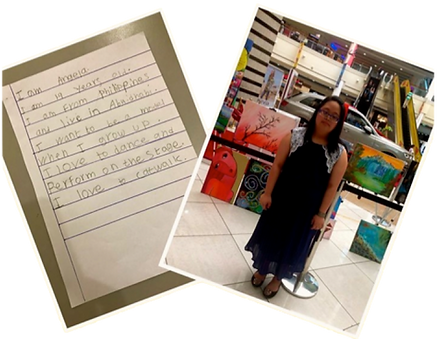 I am Angela.
I am 19 Years old.
I am From Philippines
and live in Abudhabi.
I want to be a model
when I grow up.
I love to dance and
Perform on the stage.
I love catwalk.